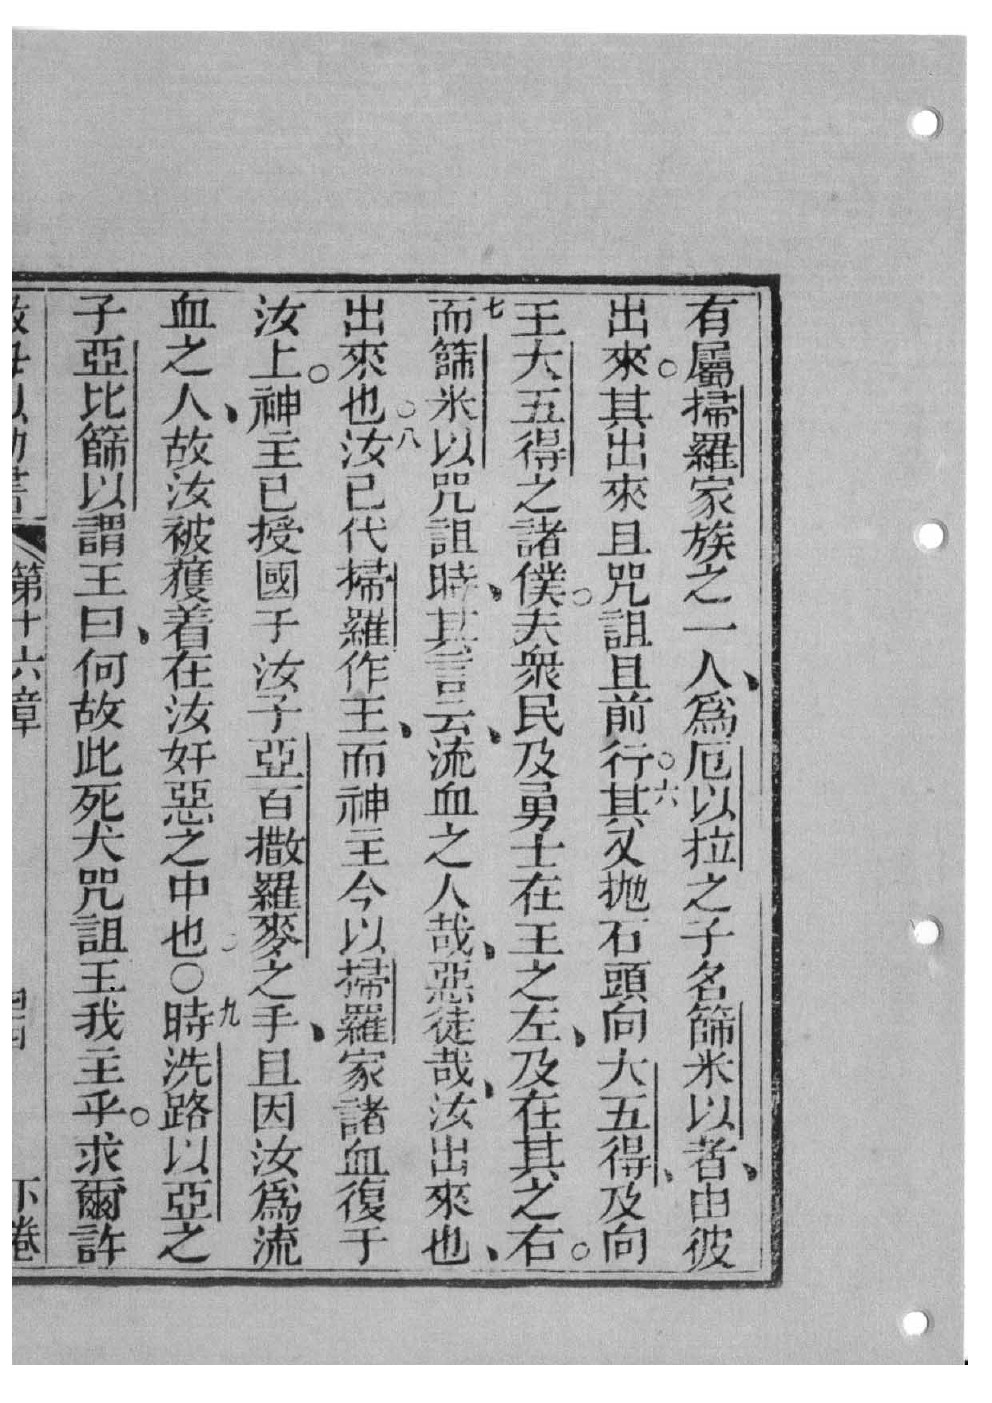 有屬掃羅家族之一人、爲厄以拉之子名篩米以者、由彼
出來。其出來且咒詛且前行。六其又抛石頭向大五得、及向
王大五得之諸僕。夫衆民及勇士在王之左、及在其之右。
七而篩米以咒詛時、其言云、流血之人哉、惡徒哉、汝出來也、
出來也。八汝已代掃羅作王、而神主今以掃羅家諸血復于
汝上。神主已授國于汝子亞百撒羅麥之手、且因汝爲流
血之人、故汝被獲着在汝奸惡之中也。○九時洗路以亞之
子亞比篩以謂王曰、何故此死犬咒詛王我主乎。求爾許
第十六章 下卷